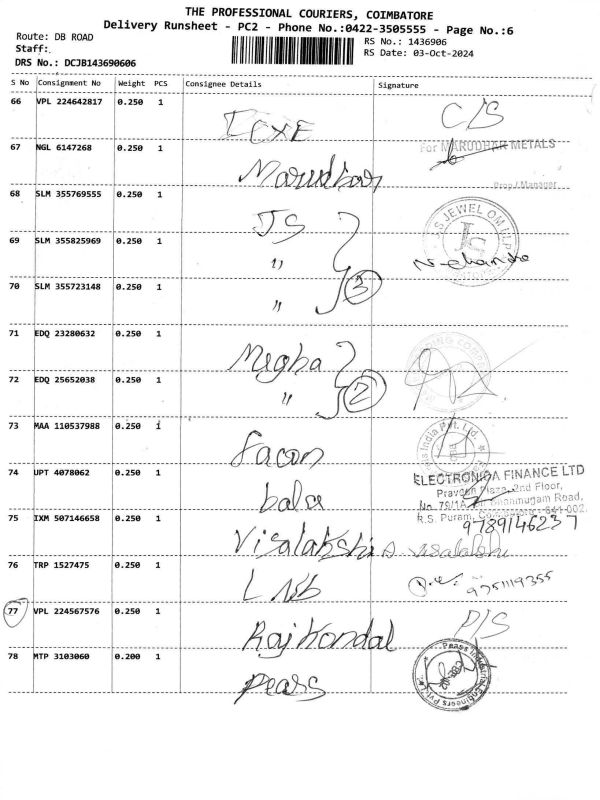 THE PROFESSIONAL COURIERS, COIMBATORE
Delivery Runsheet - PC2 - Phone No.:0422-3505555 - Page No.:6
Route: DB ROAD
RS No.: 1436906
Staff:
RS Date: 03-Oct-2024
DRS No.: DCJB143690606
S No Consignment No Weight PCS Consignee Details Signature
66 VPL 224642817 0.250 1 C/S
67 NGL 6147268 0.250 1 Marudhar For MARUDHAR METALS
Prop / Manager
68 SLM 355769555 0.250 1 JS JS JEWEL OM LLP
JS
69 SLM 355825969 0.250 1 "
70 SLM 355723148 0.250 1 " 3
71 EDQ 23280632 0.250 1 Megha
72 EDQ 25652038 0.250 1 " 2
73 MAA 110537988 0.250 1 India Pvt. Ltd.
74 UPT 4078062 0.250 1 ELECTRONICA FINANCE LTD
2nd Floor,
No. 79/1A, Shanmugam Road,
R.S. Puram, 641 002
75 IXM 507146658 0.250 1 Visalakshi 9789146237
76 TRP 1527475 0.250 1 9751119355
77 VPL 224567576 0.250 1 D/S
78 MTP 3103060 0.200 1 Peass Peass Industrial Engineers Pvt Ltd
CBE-02